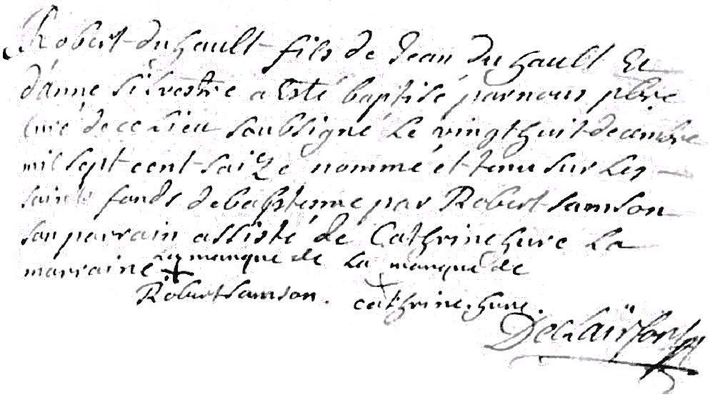 Robert duhault fils de Jean du hault Et
d'anne silvestre a Esté baptisé par nous pbre
curé de ce lieu soubsigné Le vingt huit decembre
mil sept cent saize nommé et tenu sur Les
saints fonds de baptenne par Robert samson
son parrain assisté de Cathrine hure La
marraine La marque de La marque de
Robert samson. cathrine hure.